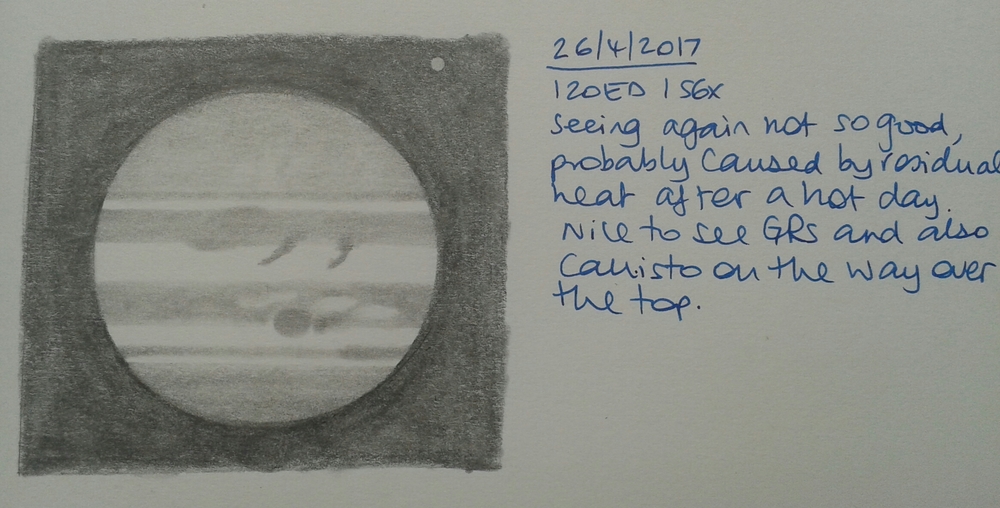 26/4/2017
120ED 156x
seeing again not so good,
probably caused by residual
heat after a hot day.
Nice to see GRS and also
Callisto on the way over
the top.